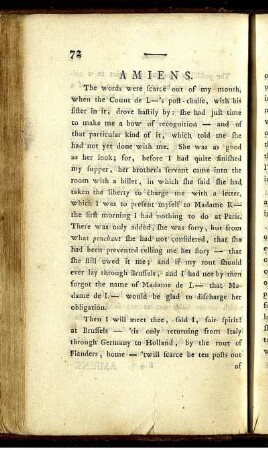 72
AMIENS.
The words were scarce out of my mouth,
when the Count de L—'s post-chaise, with his
sister in it, drove hastily by: she had just time
to make me a bow of recognition — and of
that particular kind of it, which told me she
had not yet done with me. She was as good
as her look; for, before I had quite finished
my supper, her brother's servant came into the
room with a billet, in which she said she had
taken the liberty to charge me with a letter,
which I was to present myself to Madame R—
the first morning I had nothing to do at Paris.
There was only added, she was sorry, but from
what penchant she had not considered, that she
had been prevented telling me her story — that
she still owed it me; and if my rout should
ever lay through Brussels, and I had not by then
forgot the name of Madame de L— that Ma-
dame de L— would be glad to discharge her
obligation.
Then I will meet thee, said I, fair spirit!
at Brussels — 'tis only returning from Italy
through Germany to Holland, by the rout of
Flanders, home — 'twill scarce be ten posts out
of